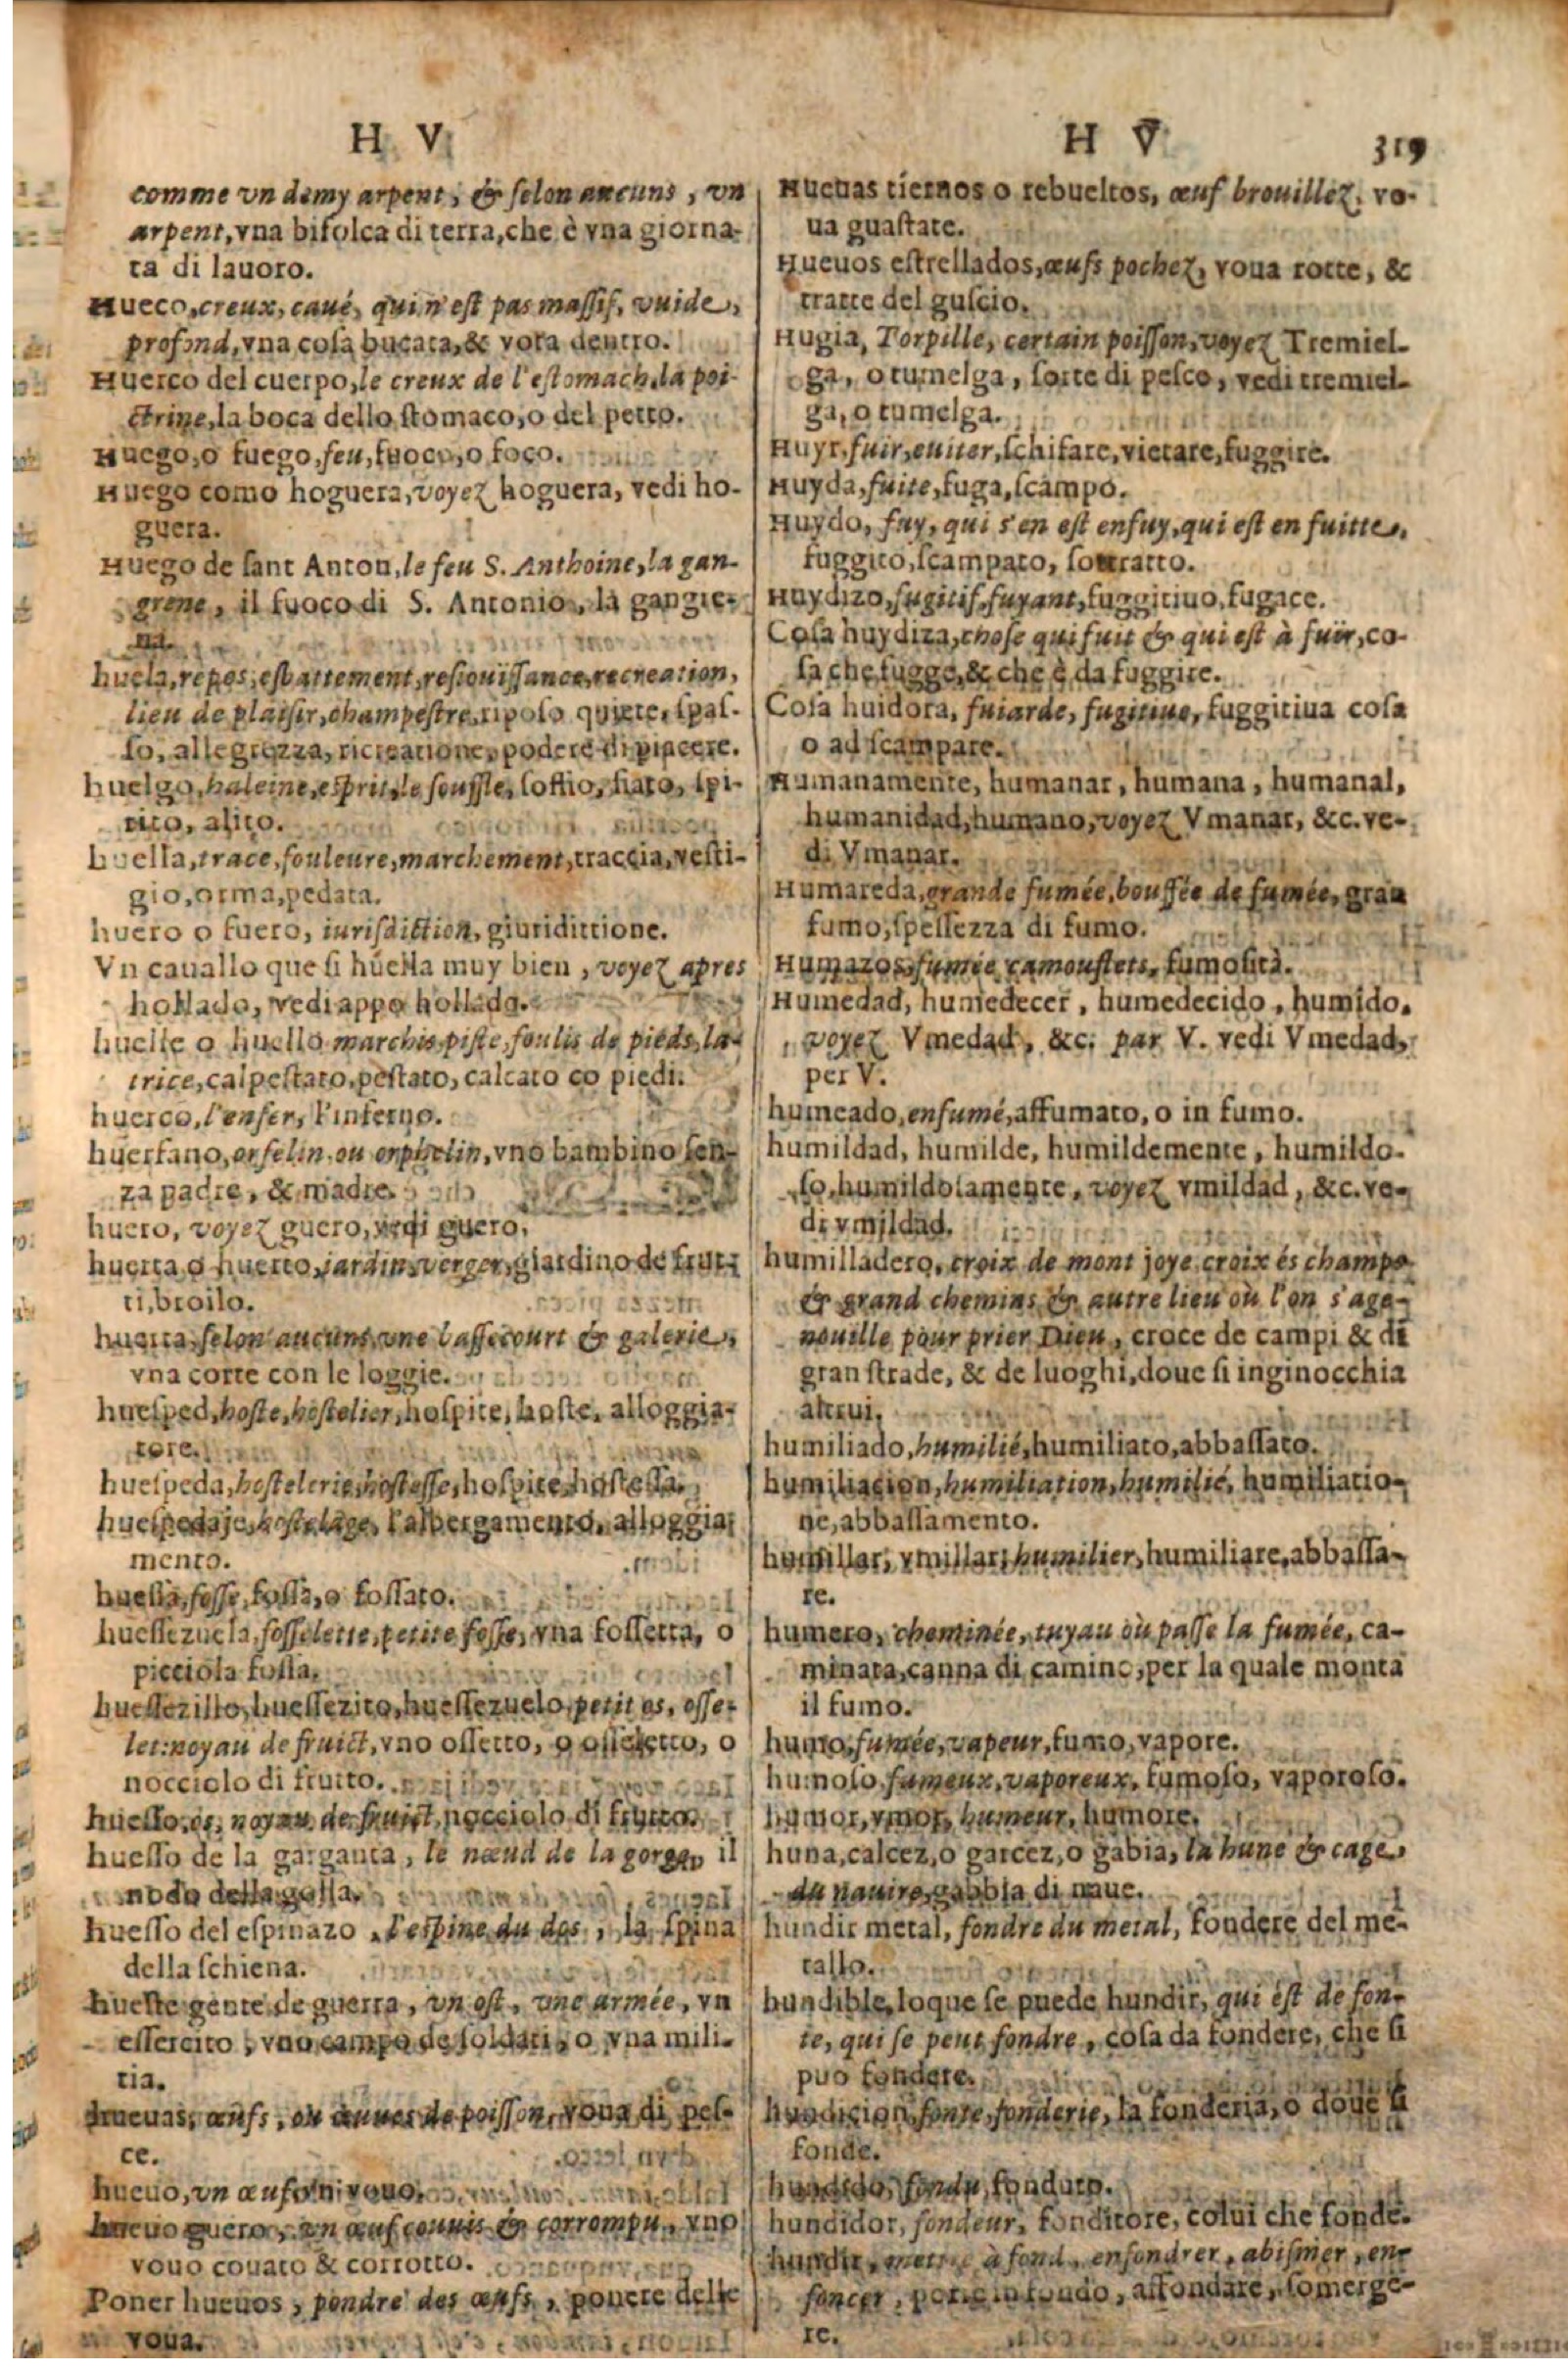 H V
comme vn demy arpent, & selon aucuns, vn
arpent, vna bifolca di terra, che è vna giorna-
ta di lauoro.
Hueco, creux, caué, qui n'est pas massif, vuide,
profond, vna cosa bucata, & vota dentro.
Huerco del cuerpo, le creux de l'estomach, la poi-
ctrine, la boca dello stomaco, o del petto.
Huego, o fuego, feu, fuoco, o foco.
Huego como hoguera, voyez hoguera, vedi ho-
guera.
Huego de sant Anton, le feu S. Anthoine, la gan-
grene, il fuoco di S. Antonio, la gangre-
na.
huela, repos, esbattement, resiouïssance, recreation,
lieu de plaisir, champestre, riposo quiete, spas-
so, allegrezza, ricreatione, podere di piacere.
huelgo, haleine, esprit, le souffle, soffio, fiato, spi-
rito, alito.
huella, trace, fouleure, marchement, traccia, vesti-
gio, orma, pedata.
huero o fuero, iurisdiction, giuridittione.
Vn cauallo que si huella muy bien, voyez apres
hollado, vedi appo hollado.
huelle o huello marchis, piste, foulis de pieds, la-
trice, calpestato, pestato, calcato co piedi.
huerco, l'enfer, l'inferno.
huerfano, orfelin, ou orphelin, vno bambino sen-
za padre, & madre.
huero, voyez guero, vedi guero.
huerta o huerto, jardin, verger, giardino de frut-
ti, broilo.
huerta, selon aucuns, vne bassecourt & galerie,
vna corte con le loggie.
huesped, hoste, hostelier, hospite, hoste, alloggia-
tore.
huespeda, hostelerie, hostesse, hospite, hostessa.
huespedaje, hostelage, l'albergamento, alloggia-
mento.
huessa, fosse, fossa, o fossato.
huessezuela, fosselette, petite fosse, vna fossetta, o
picciola fossa.
huessezillo, huessezito, huessezuelo, petit os, osse-
let: noyau de fruict, vno ossetto, o ossetto, o
nocciolo di frutto.
huesso, os, noyau de fruict, nocciolo di frutto.
huesso de la garganta, le nœud de la gorge, il
nodo della golla.
huesso del espinazo, l'espine du dos, la spina
della schiena.
hueste gente de guerra, vn ost, vne armée, vn
essercito, vno campo de soldati, o vna mili-
tia.
hueuas, œufs, ou de poisson, voua di pes-
ce.
hueuo, vn œuf vouo.
hueuo guero, vn œuf couuis & corrompu, vno
vouo couato & corrotto.
Poner hueuos, pondre des œufs, ponere delle
voua.
H V 319
Hueuas tiernos o rebueltos, œuf brouillez, vo-
ua guastate.
Hueuos estrellados, œufs pochez, voua rotte, &
tratte del guscio.
Hugia, Torpille, certain poisson, voyez Tremiel-
ga, o tumelga, sorte di pesco, vedi tremiel-
ga, o tumelga.
Huyr, fuir, euiter, schifare, vietare, fuggire.
Huyda, fuite, fuga, scampo.
Huydo, fuy, qui s'en est enfuy, qui est en fuitte,
fuggito, scampato, sottratto.
Huydizo, fugitif, fuyant, fuggitiuo, fugace.
Cosa huydiza, chose qui fuit & qui est à fuïr, co-
sa che fugge, & che è da fuggire.
Cosa huidora, fuiarde, fugitiue, fuggitiua cosa
o ad scampare.
Humanamente, humanar, humana, humanal,
humanidad, humano, voyez Vmanar, &c. ve-
di Vmanar.
Humareda, grande fumée, bouffée de fumée, gran
fumo, spessezza di fumo.
Humazos, fumée, camouflets, fumosità.
Humedad, humedecer, humedecido, humido,
voyez Vmedad, &c. par V. vedi Vmedad,
per V.
humeado, enfumé, affumato, o in fumo.
humildad, humilde, humildemente, humildo-
so, humildosamente, voyez vmildad, &c. ve-
di vmildad.
humilladero, croix de mont joye croix és champs
& grand chemins & autre lieu où l'on s'age-
nouille pour prier Dieu, croce de campi & di
gran strade, & de luoghi, doue si inginocchia
altrui.
humiliado, humilié, humiliato, abbassato.
humiliacion, humiliation, humilié, humiliatio-
ne, abbassamento.
humillar, vmillar, humilier, humiliare, abbassa-
re.
humero, cheminée, tuyau où passe la fumée, ca-
minata, canna di camino, per la quale monta
il fumo.
humo, fumée, vapeur, fumo, vapore.
humoso, fumeux, vaporeux, fumoso, vaporoso.
humor, vmor, humeur, humore.
huna, calcez, o garcez, o gabia, la hune & cage,
du nauire, gabbia di naue.
hundir metal, fondre du metal, fondere del me-
tallo.
hundible, loque se puede hundir, qui est de fon-
te, qui se peut fondre, cosa da fondere, che si
puo fondere.
hundicion, fonte, fonderie, la fonderia, o doue si
fonde.
hundido, fondu, fonduto.
hundidor, fondeur, fonditore, colui che fonde.
hundir, mettre à fond, enfondrer, abismer, en-
foncer, porre in fondo, affondare, somerge-
re.